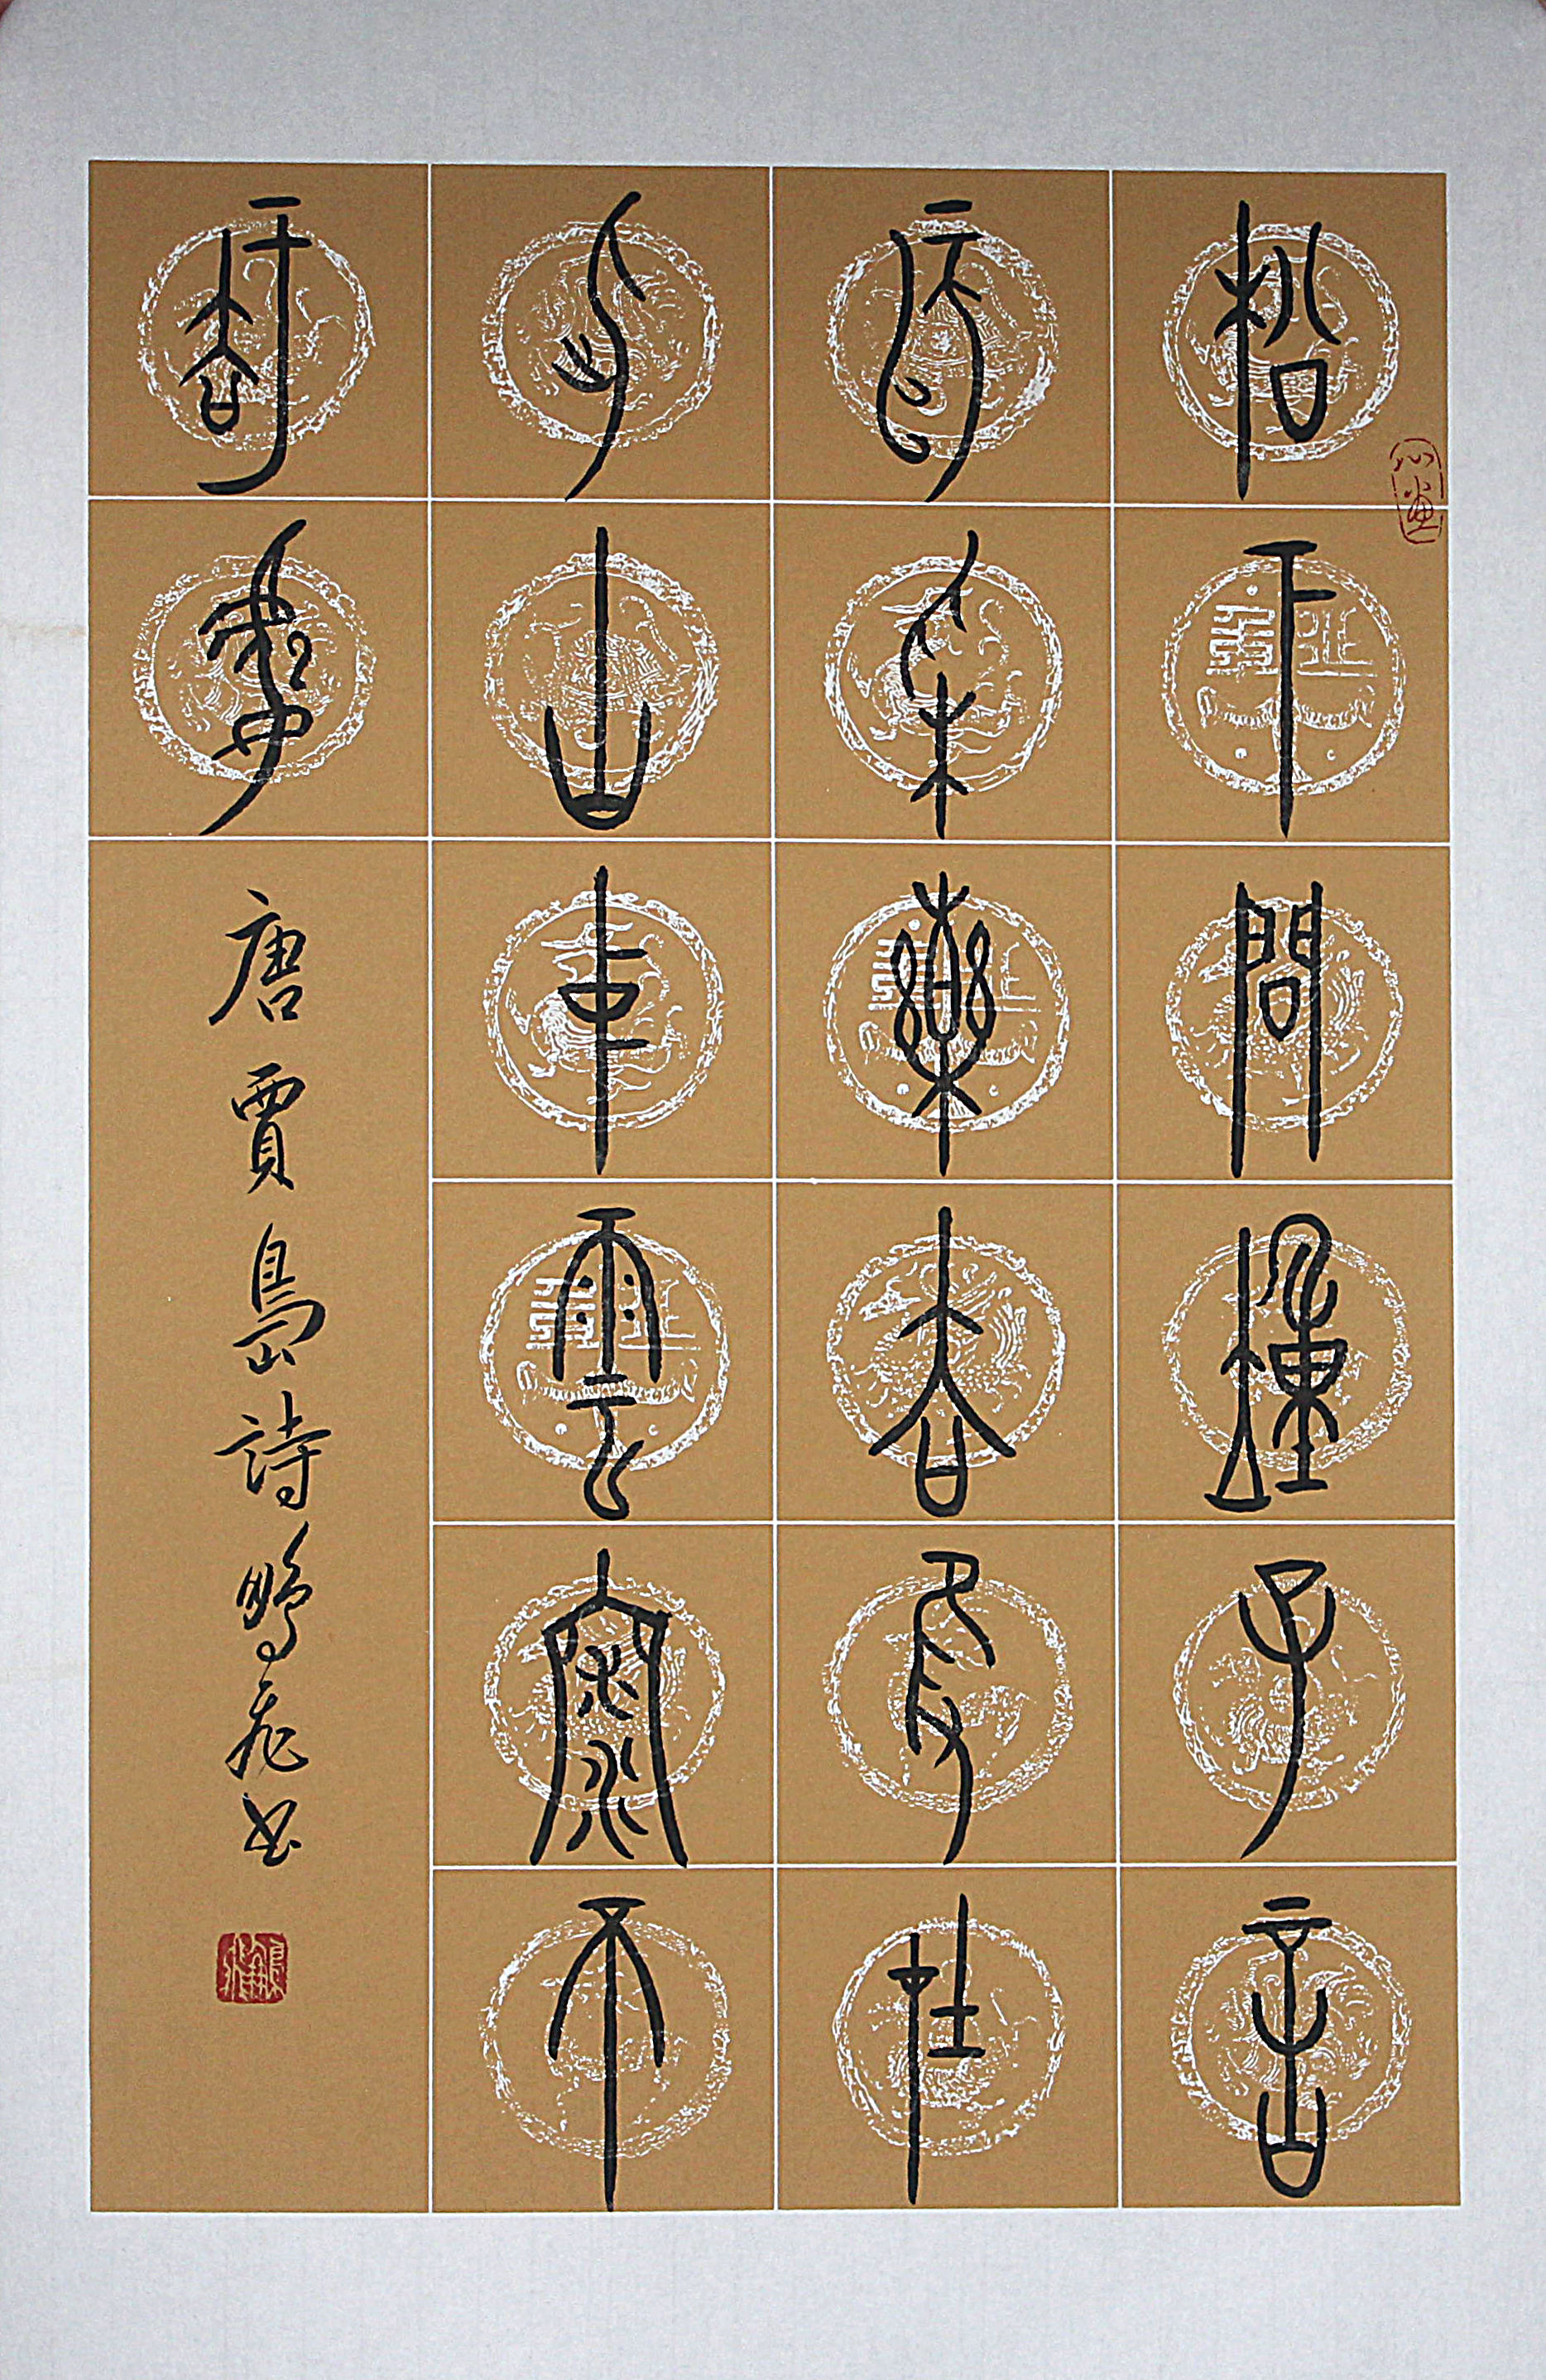 松下問童子言
師采藥去只在
此山中雲深不
知處
唐賈島詩鵬飛書
心畫